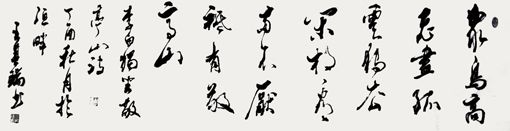 眾鳥高
飛盡孤
雲獨去
閒相看
两不厭
祗有敬
亭山
李白獨坐敬
亭山詩
丁酉秋月於
畔
王